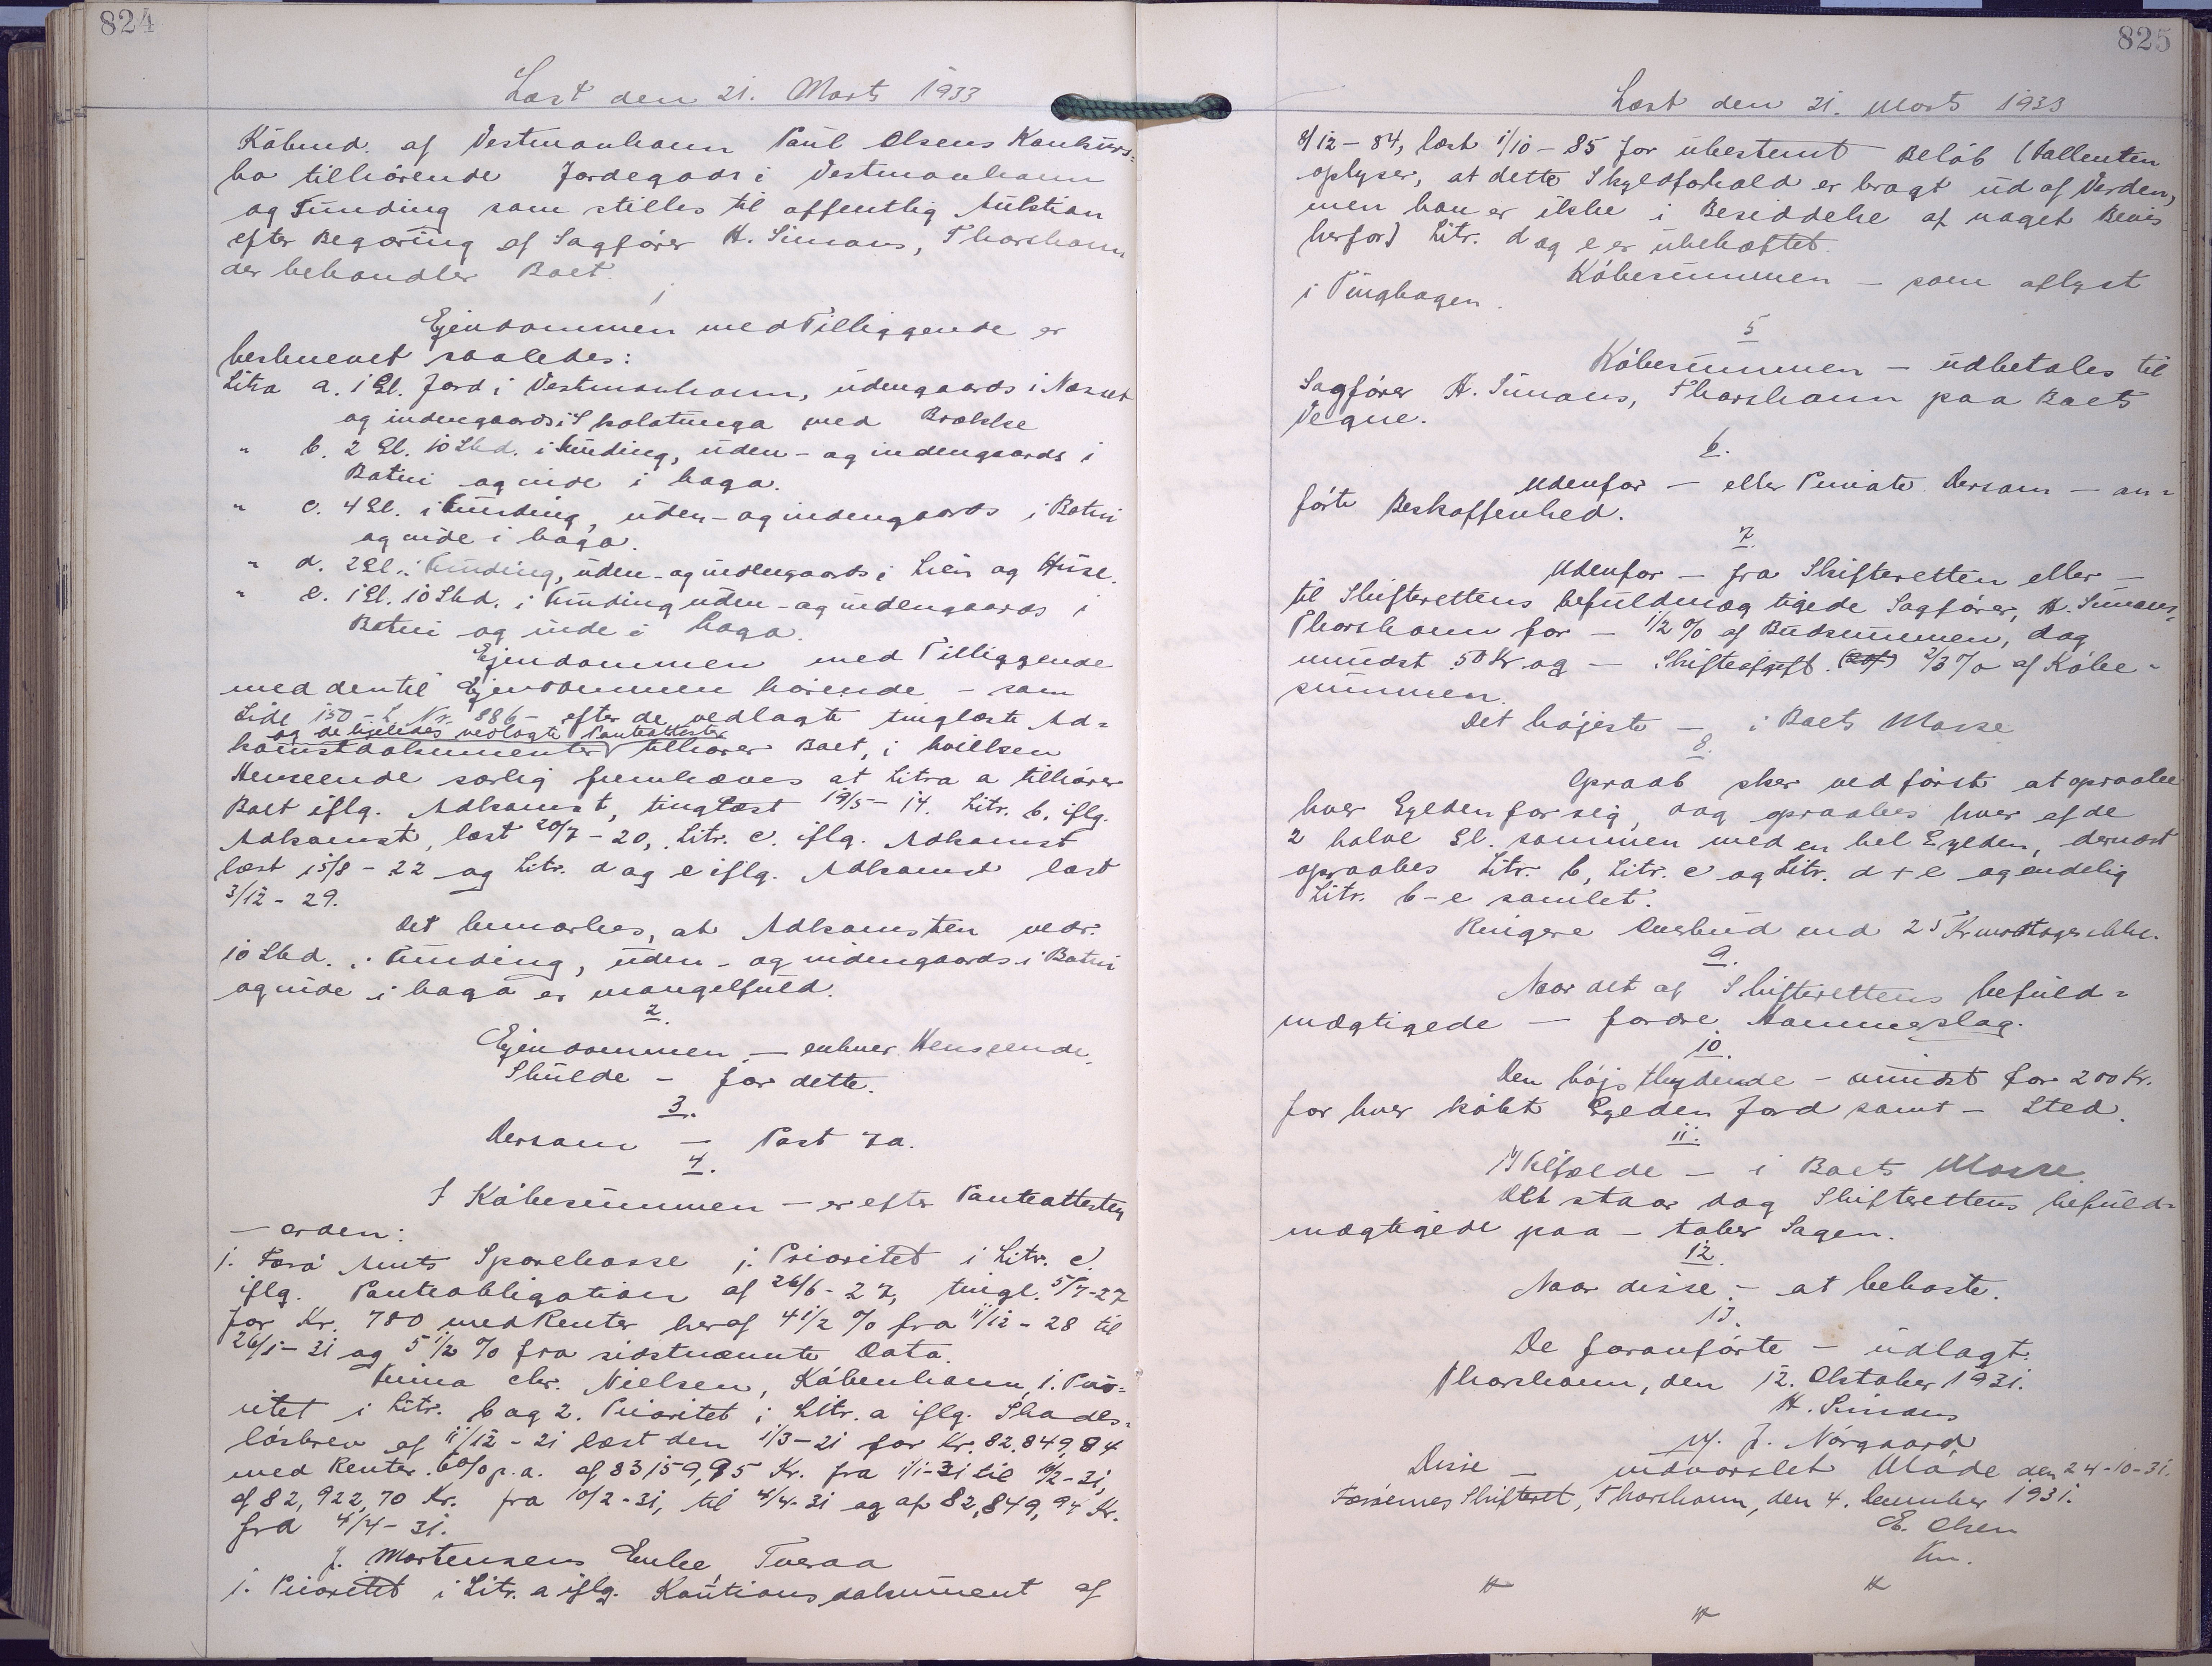 824
Læst den 21. Marts 1933
Købmd. af Vestmanhavn Paul Olsens Konkurs-
bo tilhørende Jordegods i Vestmanhavn
og Funding som stilles til offentlig Auktion
efter Begæring af Sagfører H. Simons, Thorshavn
der behandler Boet.
1
Ejendommen med Tilliggende er
beskrevet saaledes:
Litra a. 1 Gl. Jord i Vestmanhavn, udengaards i Nesset
og indengaards i Skolatunga med Brokke
" b. 2 Gl. 10 Skd. i Funding, uden- og indengaards i
Botni og inde i haga.
" c. 4 Gl. i Funding, uden- og indengaards i Botni
og inde i haga.
" d. 2 Gl. i Funding, uden- og indengaards i Lien og Huse.
" e. 1 Gl. 10 Skd. i Funding uden- og indengaards i
Botni og inde i haga.
Ejendommen med Tilliggende
med den til Ejendommen hørende - som
Side 150 - L. Nr. 886 - efter de vedlagte tinglæste Ad-
og de ligeledes vedlagte Panteattester
komstdokumenter tilhører Boet, i hvilken
Henseende særlig fremhæves at Litra a tilhører
Boet iflg. Adkomst, tinglæst 19/5 - 14. Litr. b. iflg.
Adkomst, læst 20/7 - 20, Litr. c. iflg. Adkomst
læst 15/8 - 22 og Litr. d og e iflg. Adkomst læst
3/12 - 29.
Det bemærkes, at Adkomsten vedr.
10 Skd. i Funding, uden- og indengaards i Botni
og inde i haga er mangelfuld.
2.
Ejendommen - enhver Henseende.
Skulde - for dette.
3.
Dersom - Post 7a.
4.
I Købesummen - er efter Panteattesten
- erden:
1. Færø Amts Sparekasse 1. Prioritet i Litr. c.
iflg. Panteobligation af 26/6 - 27, tingl. 5/7-27
for Kr. 780 med Renter heraf 4 1/2 % fra 11/12 - 28 til
26/1 - 31 og 5 1/2 % fra sidstnævnte Data.
Firma Chr. Nielsen, København, 1. Prio-
ritet i Litr. b og 2. Prioritet i Litr. a iflg. Skades-
løsbrev af 11/12 - 21 læst den 1/3 - 21 for Kr. 82.849,84
med Renter 6% p.a. af 83159,95 Kr. fra 1/1-31 til 10/2-31,
af 82,922,70 Kr. fra 10/2-31, til 4/4-31 og af 82,849,94 Kr.
fra 4/4-31.
J. Mortensens Enke, Tveraa
1. Prioritet i Litr. a iflg. Kautionsdokument af
825
Læst den 21. Marts 1933
8/12-84, læst 1/10-85 for ubestemt Beløb (Fallenten
oplyser, at dette Skyldforhold er bragt ud af Verden,
men han er ikke i Besiddelse af noget Bevis
herfor) Litr. d og e er ubehæftet.
Købesummen - som aflyst
i Tingbogen.
5
Købesummen - udbetales til
Sagfører H. Simons, Thorshavn paa Boets
Vegne.
6.
Udenfor - eller Private. Dersom - an-
førte Beskaffenhed.
7.
Udenfor - fra Skifteretten eller -
til Skifterettens befuldmægtigede Sagfører, H. Simons,
Thorshavn for - 1/2 % af Budsummen, dog
mindst 50 Kr. og - Skifteafgift 2/3 % af Købe-
summen.
Det højeste - i Boets Masse
8.
Opraab sker ved først at opraabe
hver Gylden for sig, dog opraabes hver af de
2 halve Gl. sammen med en hel Gylden, dernæst
opraabes Litr. b, Litr. c og Litr. d + e og endelig
Litr. b-e samlet.
Ringere Overbud end 25 Kr modtages ikke.
9.
Naar det af Skifterettens befuld-
mægtigede - fordre Hammerslag.
10.
Den højstbydende - mindst for 200 Kr.
for hver købt Gylden Jord samt - Sted.
11.
I Tilfælde - i Boets Masse.
Det staar dog Skifterettens befuld-
mægtigede paa - taber Sagen.
12.
Naar disse - at bekoste.
13.
De foranførte - udlagt.
Thorshavn, den 12. Oktober 1931.
H. Simons
J. Nørgaard
Disse - indvarslet Møde den 24-10-31.
Færøernes Skifteret, Thorshavn, den 4. December 1931.
E. Olsen